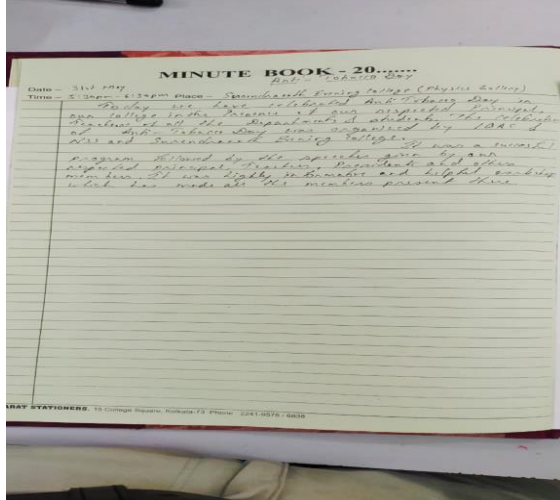 MINUTE BOOK - 20.......
Anti - Tobacco Day
Date - 31st May
Time - 5:30pm - 6:30pm Place - Surendranath Evening College (Physics Gallery)
Today we have celebrated Anti Tobacco Day in
our college in the presence of our respected Principal,
Teachers of all the Departments & students. The celebration
of Anti-Tobacco Day was organised by IQAC &
NSS and Surendranath Evening College.
It was a successful
program followed by the speeches given by our
respected principal, Teacher, Presidents and others
members. It was highly informative and helpful workshop
which has made all the members present there
BHARAT STATIONERS. 15 College Square, Kolkata-73 Phone